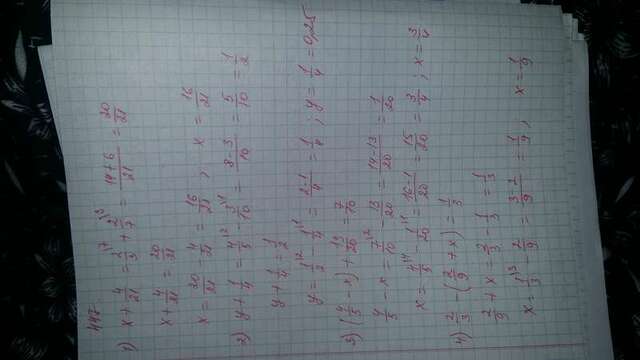 447.
1) x + 4/21 = 2/3^17 + 2/7^13 = (14+6)/21 = 20/21
x + 4/21 = 20/21
x = 20/21 - 4/21 = 16/21 ; x = 16/21
2) y + 1/4 = 4/5^12 - 3/10^11 = (8-3)/10 = 5/10 = 1/2
y + 1/4 = 1/2
y = 1/2^12 - 1/4^11 = (2-1)/4 = 1/4 ; y = 1/4 = 0,25
3) (4/5 - x) + 13/20 = 7/10
4/5 - x = 7/10^12 - 13/20 = (14-13)/20 = 1/20
x = 4/5^14 - 1/20^11 = (16-1)/20 = 15/20 = 3/4 ; x = 3/4
4) 2/3 - (2/9 + x) = 1/3
2/9 + x = 2/3 - 1/3 = 1/3
x = 1/3^13 - 2/9 = (3-2)/9 = 1/9 ; x = 1/9